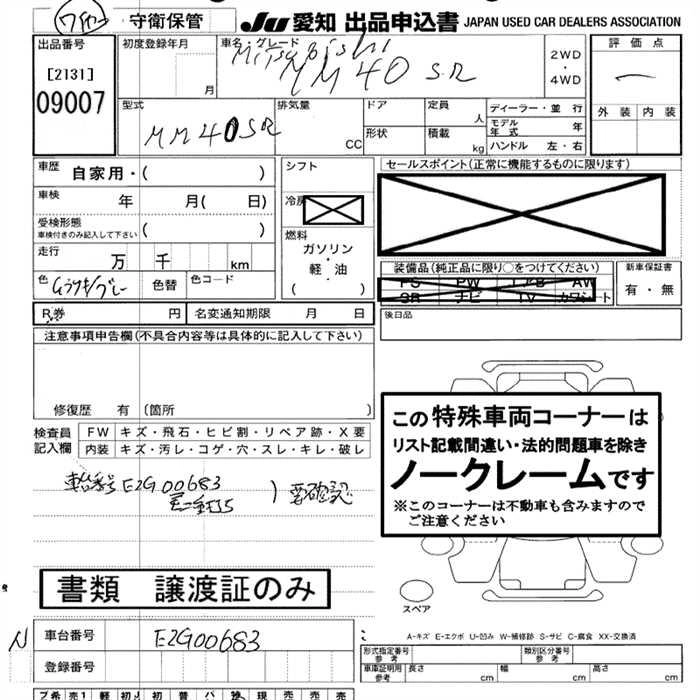 守衛保管
JU 愛知 出品申込書 JAPAN USED CAR DEALERS ASSOCIATION
出品番号
[2131]
09007
初度登録年月
月
車名・グレード
Mitsubishi
MM40 SR
2WD
・
4WD
評価点
外装 内装
型式
MM40SR
排気量
CC
ドア
形状
定員
人
積載
kg
ディーラー・並行
モデル年式 年
ハンドル 左・右
車歴 自家用・( )
車検 年 月( 日)
受検形態
車検付きのみ記入して下さい ( )
走行 万 千 km
色 色替 色コード
R券 円 名変通知期限 月 日
シフト
冷房
燃料
ガソリン
軽・油
( )
セールスポイント(正常に機能するものに限ります)
装備品(純正品に限り○をつけてください)
PS PW エアB AW
SR ナビ TV カワシート
新車保証書
有・無
後日品
注意事項申告欄(不具合内容等は具体的に記入して下さい)
修復歴 有 (箇所 )
検査員
記入欄
FW キズ・飛石・ヒビ割・リペア跡・X要
内装 キズ・汚レ・コゲ・穴・スレ・キレ・破レ
車台番号 E2G00683
要確認
この特殊車両コーナーは
リスト記載間違い・法的問題車を除き
ノークレームです
※このコーナーは不動車も含みますので
ご注意ください
書類 譲渡証のみ
スペア
A-キズ E-エクボ U-凹み W-補修跡 S-サビ C-腐食 XX-交換済
N
車台番号 E2G00683
登録番号
形式指定番号
参考
類別区分番号
参考
車庫証明用
参考
長さ 幅 高さ